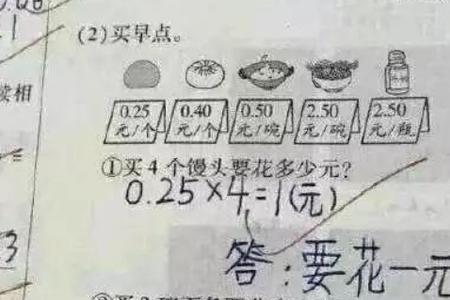 (2)买早点。
0.25 0.40 0.50 2.50 2.50
元/个 元/个 元/碗 元/碗 元/瓶
读相
①买4个馒头要花多少元?
0.25×4=1(元)
3
答:要花一元